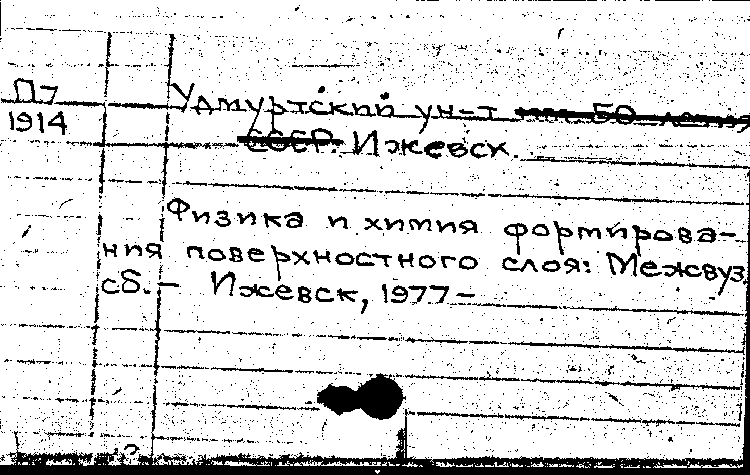 П7
1914
Удмуртский ун-т им. 50-летия
СССР. Ижевск.
Физика и химия формирова-
ния поверхностного слоя: Межвуз.
сб. — Ижевск, 1977 —